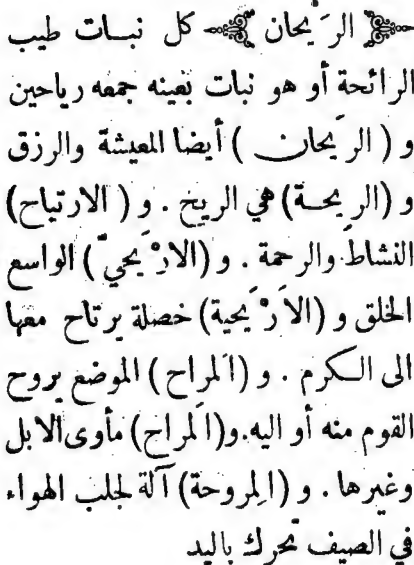 ﴿ الرَّيحان ﴾ كل نبات طيب
الرائحة أو هو نبات بعينه جمعه رياحين
و ( الرَيحان ) أيضا المعيشة والرزق
و (الريحة) هي الريح . و ( الارتياح)
النشاط والرحمة . و (الارْيَحيّ ) الواسع
الخلق و (الاَرْيَحية) خصلة يرتاح معها
الى الكرم . و (اَلمراح ) الموضع يروح
القوم منه أو اليه. و(اُلمراح) مأوى الابل
وغيرها . و (اِلمروحة) آلة لجلب الهواء
في الصيف تحرك باليد